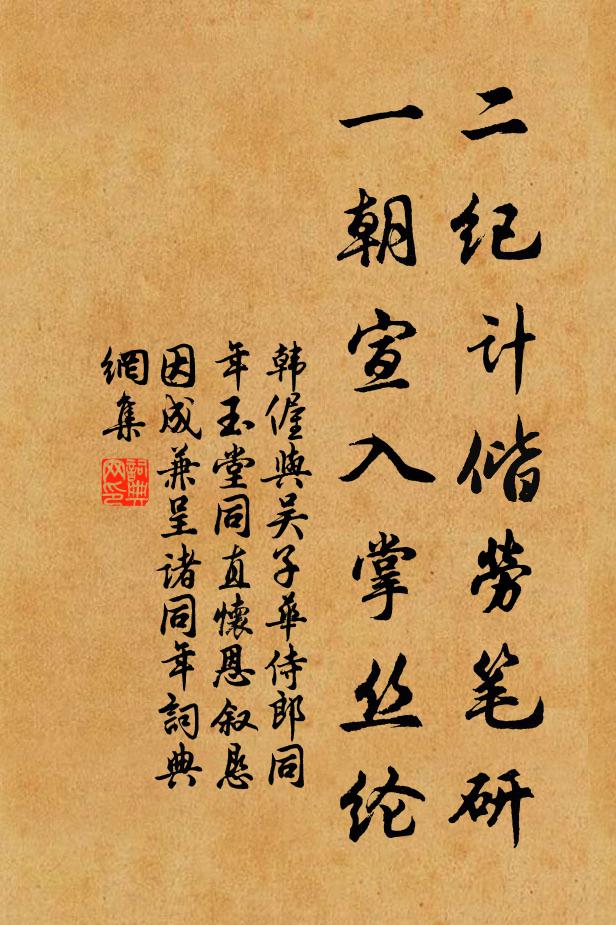 二纪计偕勞笔研
一朝宣入掌丝纶
韩偓與吴子華侍郎同
年玉堂同直懷恩叙恳
因成兼呈诸同年詞典
網集
詞典網印